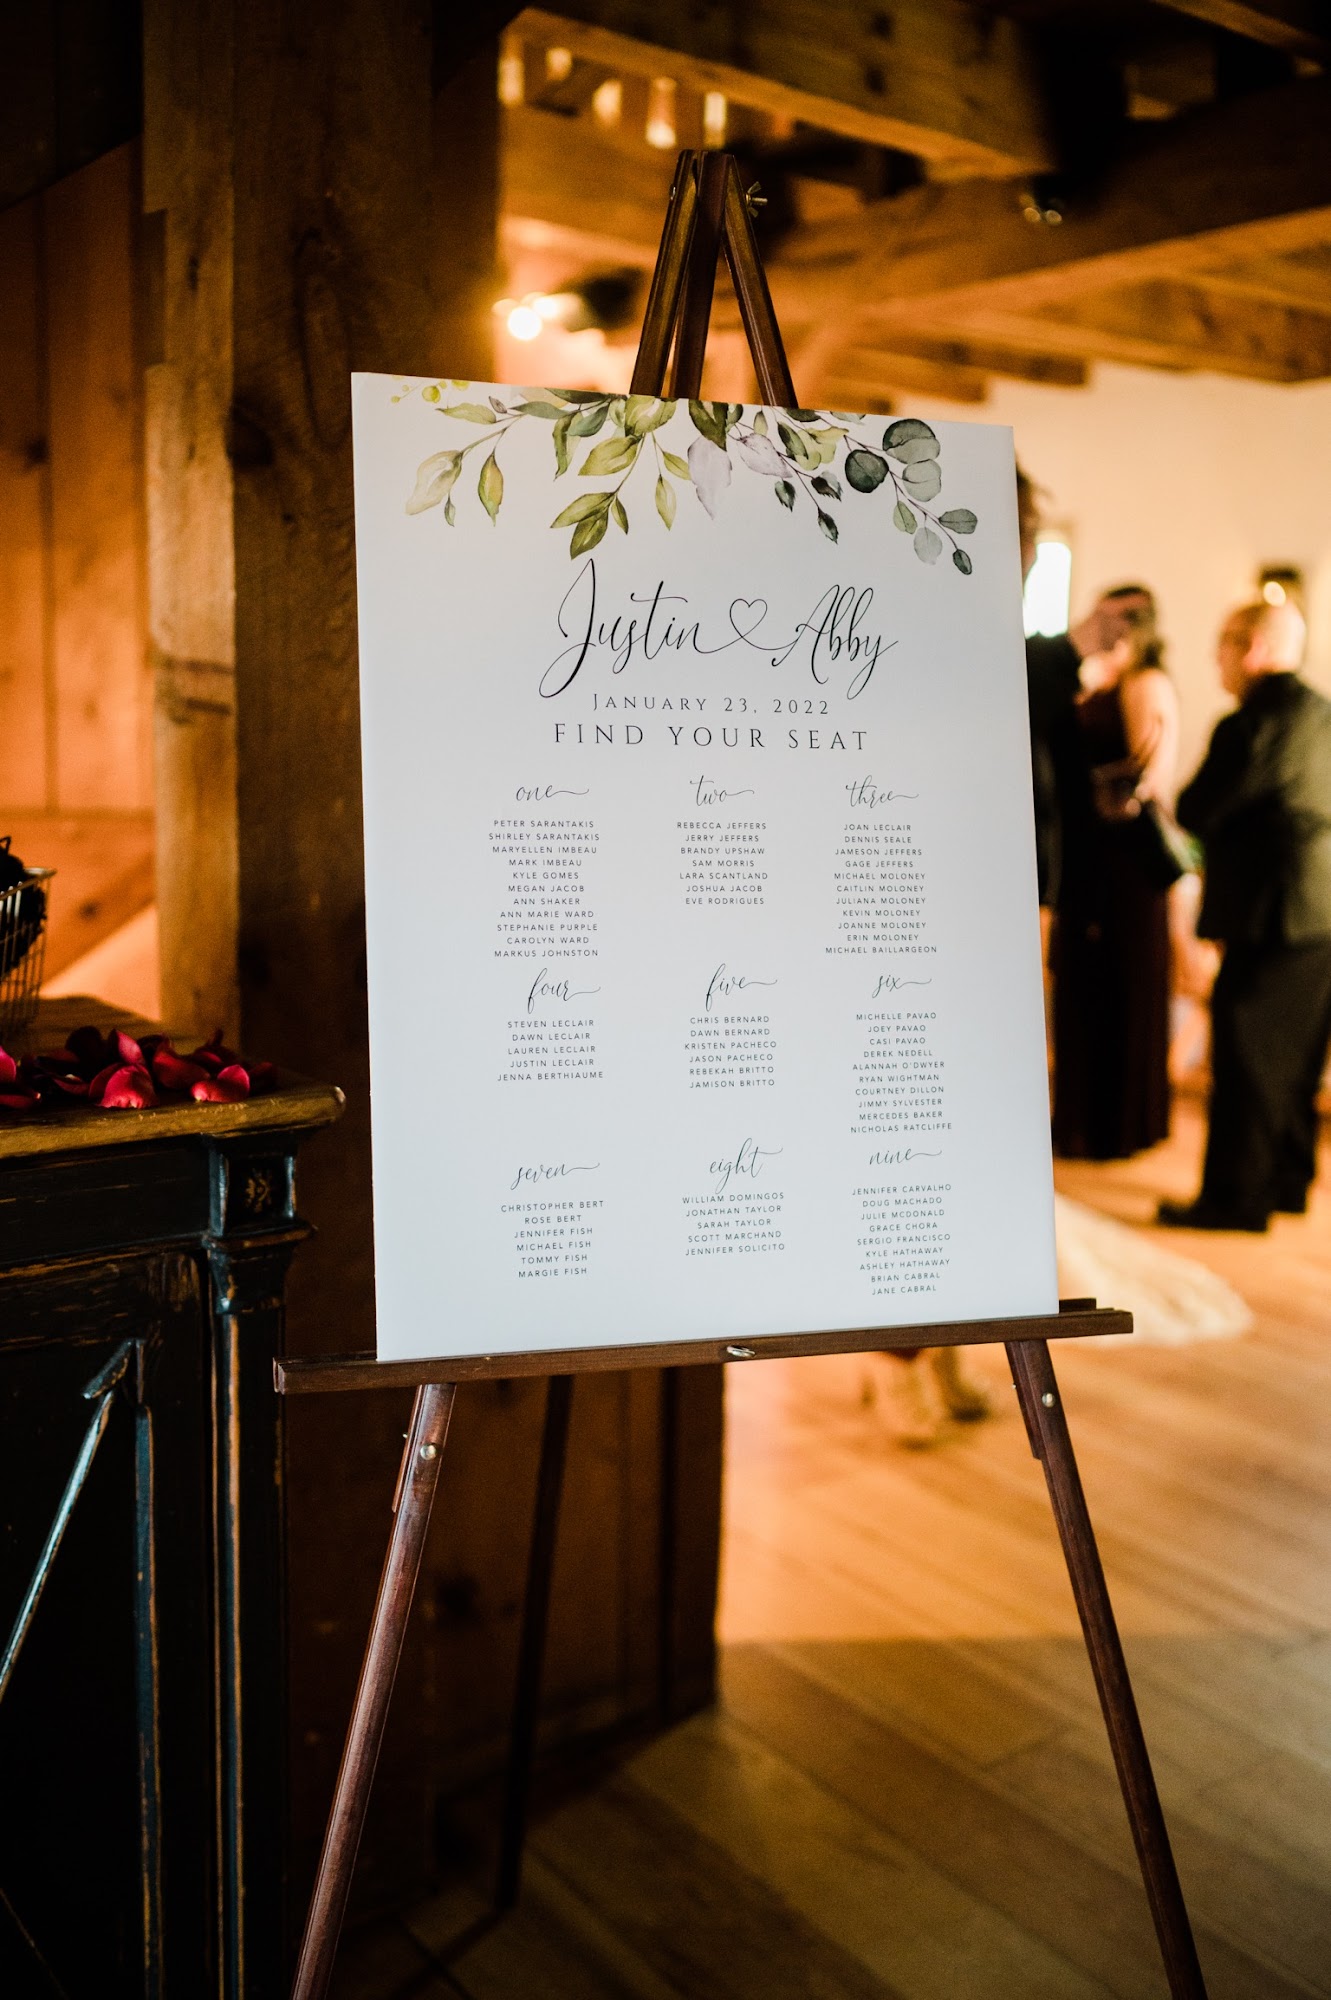 Justin Abby
JANUARY 23, 2022
FIND YOUR SEAT
one
PETER SARANTAKIS
SHIRLEY SARANTAKIS
MARYELLEN IMBEAU
MARK IMBEAU
KYLE GOMES
MEGAN JACOB
ANN SHAKER
ANN MARIE WARD
STEPHANIE PURPLE
CAROLYN WARD
MARKUS JOHNSTON
two
REBECCA JEFFERS
JERRY JEFFERS
BRANDY UPSHAW
SAM MORRIS
LARA SCANTLAND
JOSHUA JACOB
EVE RODRIGUES
three
JOAN LECLAIR
DENNIS SEALE
JAMESON JEFFERS
GAGE JEFFERS
MICHAEL MOLONEY
CAITLIN MOLONEY
JULIANA MOLONEY
KEVIN MOLONEY
JOANNE MOLONEY
ERIN MOLONEY
MICHAEL BAILLARGEON
four
STEVEN LECLAIR
DAWN LECLAIR
LAUREN LECLAIR
JUSTIN LECLAIR
JENNA BERTHIAUME
five
CHRIS BERNARD
DAWN BERNARD
KRISTEN PACHECO
JASON PACHECO
REBEKAH BRITTO
JAMISON BRITTO
six
MICHELLE PAVAO
JOEY PAVAO
CASI PAVAO
DEREK NEDELL
ALANNAH O'DWYER
RYAN WIGHTMAN
COURTNEY DILLON
JIMMY SYLVESTER
MERCEDES BAKER
NICHOLAS RATCLIFFE
seven
CHRISTOPHER BERT
ROSE BERT
JENNIFER FISH
MICHAEL FISH
TOMMY FISH
MARGIE FISH
eight
WILLIAM DOMINGOS
JONATHAN TAYLOR
SARAH TAYLOR
SCOTT MARCHAND
JENNIFER SOLICITO
nine
JENNIFER CARVALHO
DOUG MACHADO
JULIE MCDONALD
GRACE CHORA
SERGIO FRANCISCO
KYLE HATHAWAY
ASHLEY HATHAWAY
BRIAN CABRAL
JANE CABRAL